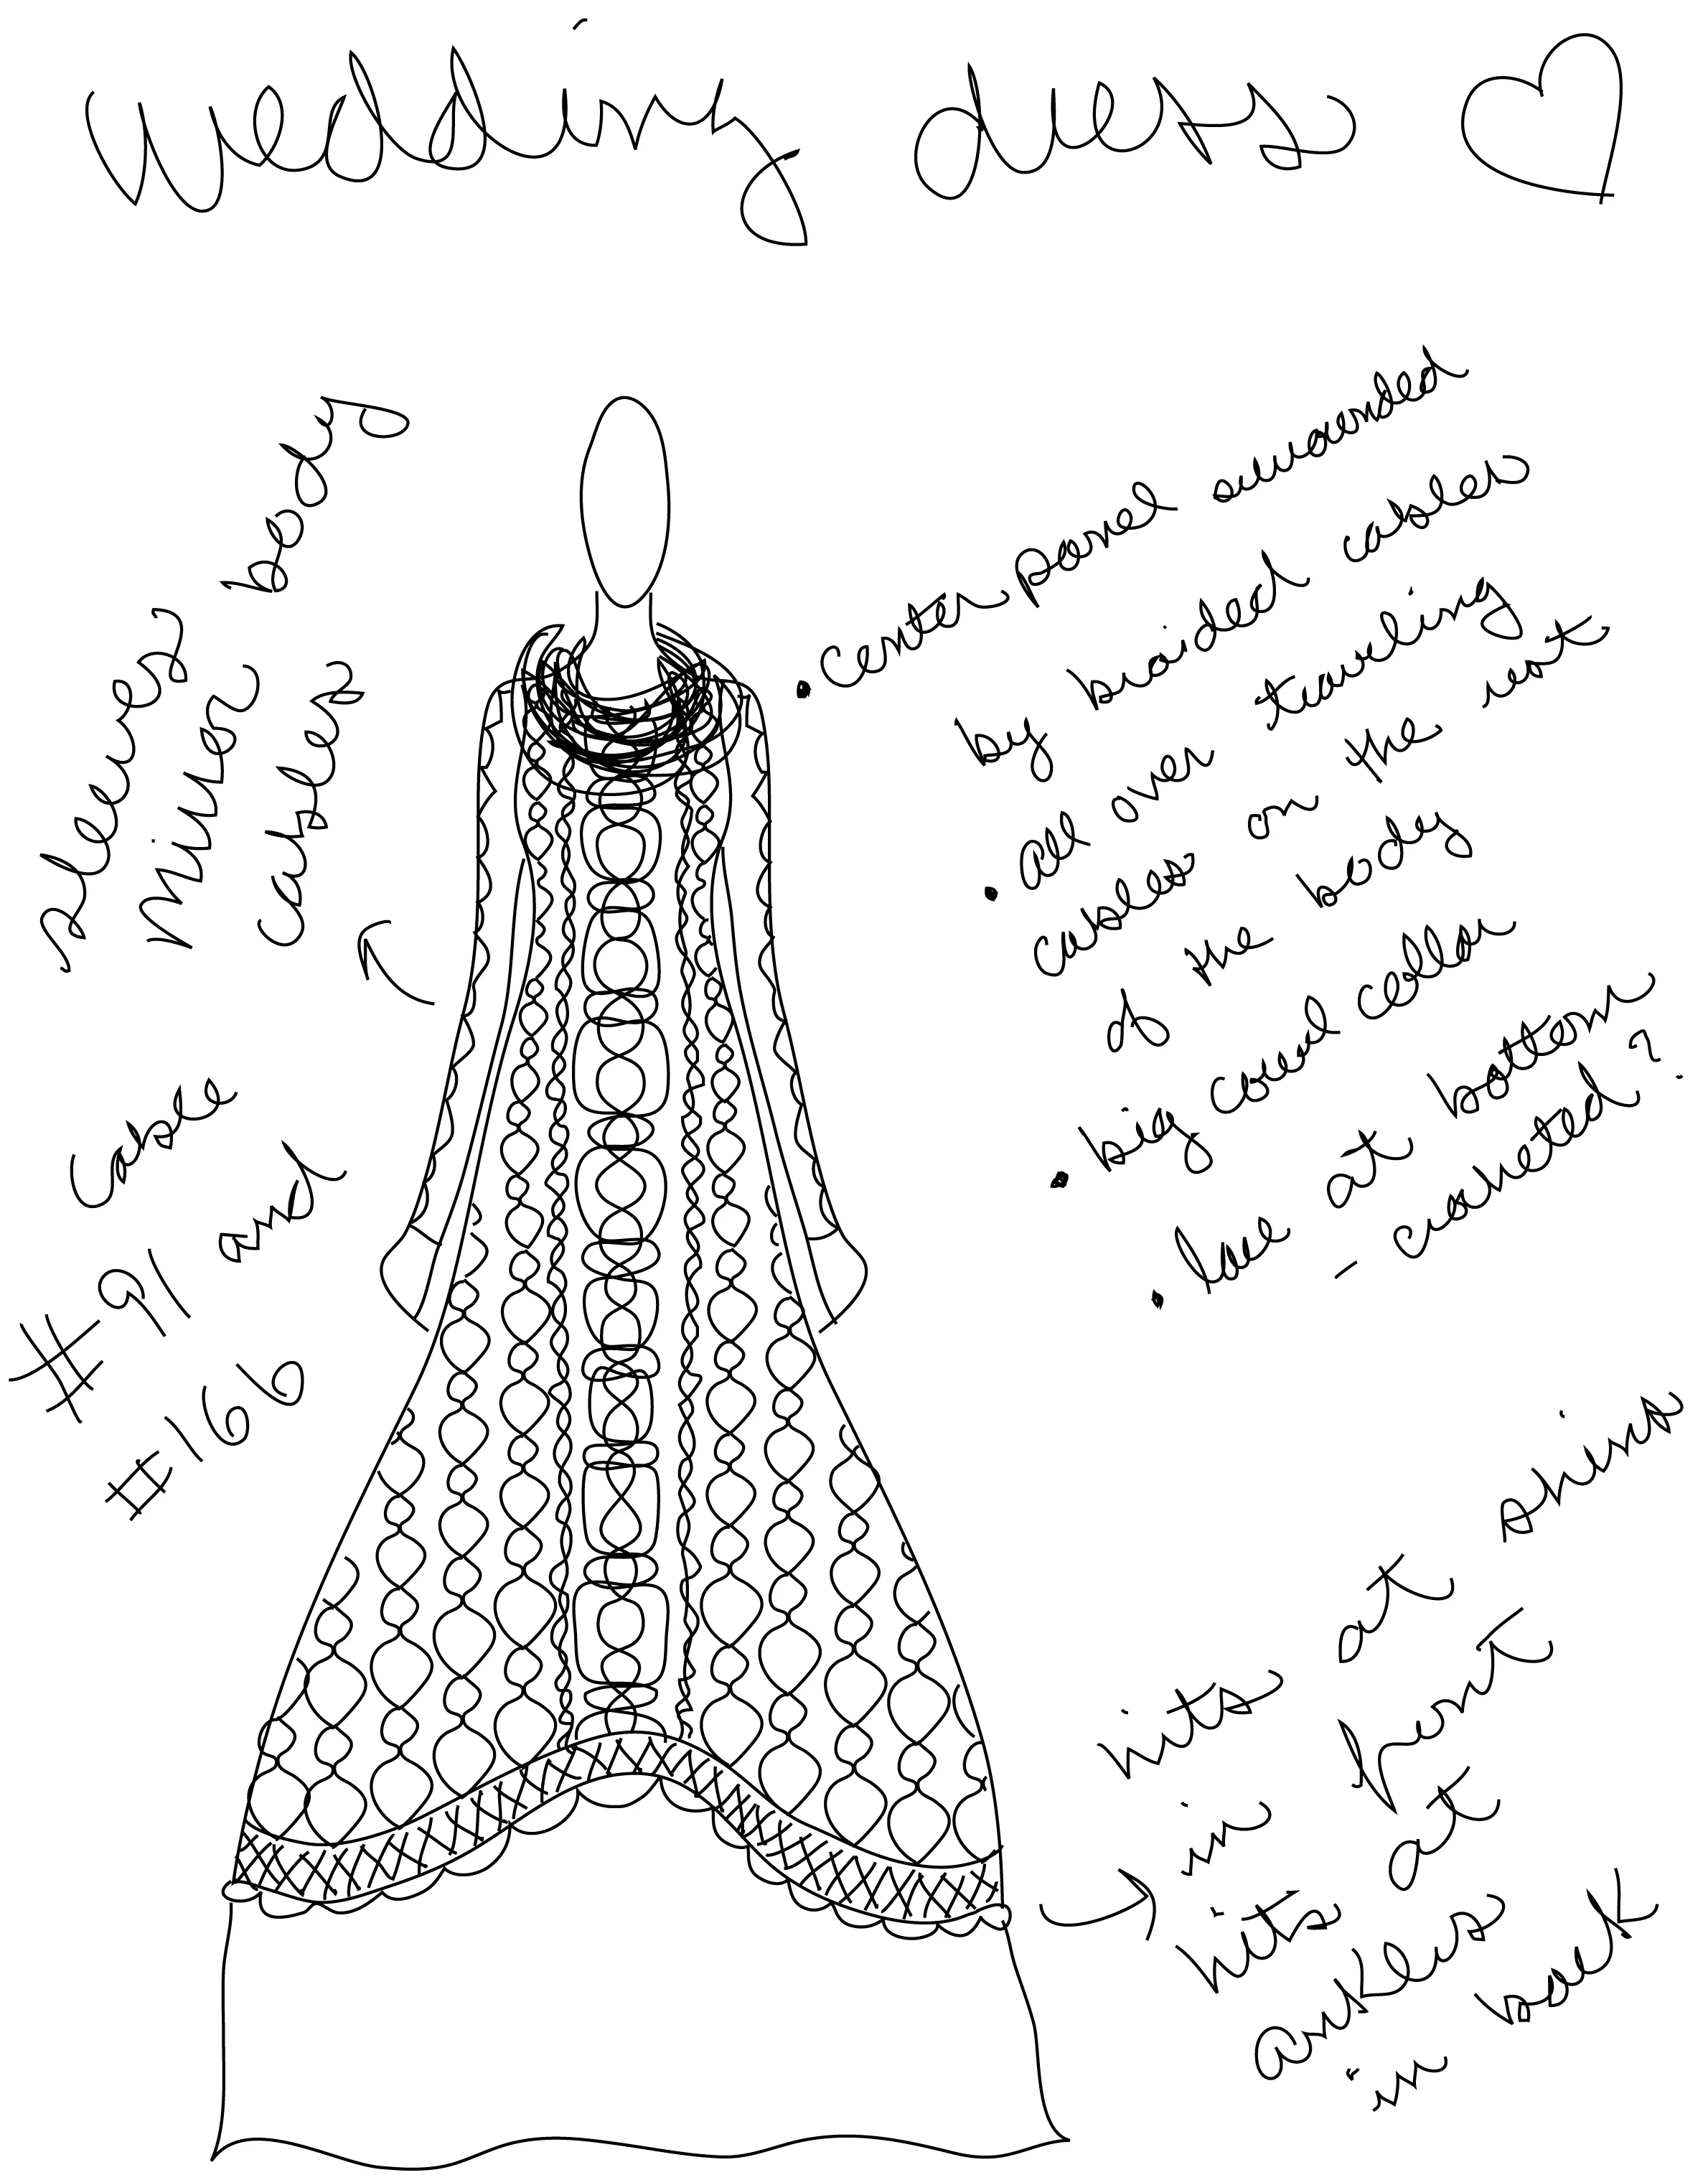 wedding dress
sleeves body
mirror
cables
cable
#91 and
#166
• center panel surrounded
by braided cables
• all over traveling
cables on the rest
of the body
• big cowl collar
• lace at bottom
- crocheted?
hits at shins
in front
hits at
ankles
in back